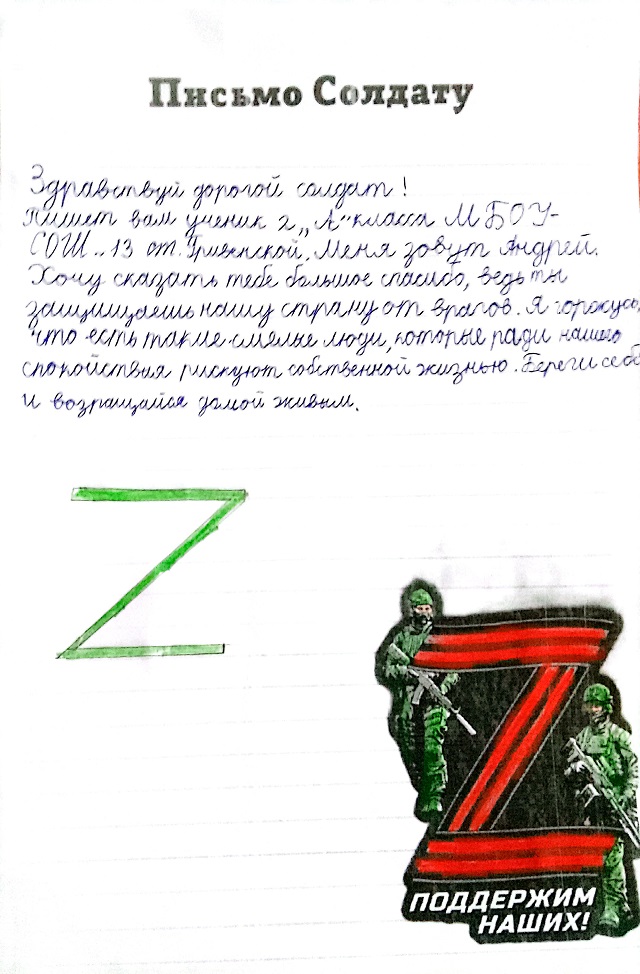 Письмо Солдату
Здравствуй дорогой солдат!
Пишет вам ученик 2 „А" класса МБОУ-
СОШ.. 13 ст. Гривенской, Меня зовут Андрей.
Хочу сказать тебе большое спасибо, ведь ты
защищаешь нашу страну от врагов. Я горжусь,
что есть такие смелые люди, которые ради нашего
спокойствия рискуют собственной жизнью. Береги себя
и возращайся домой живым.
Z
Z
ПОДДЕРЖИМ
НАШИХ!